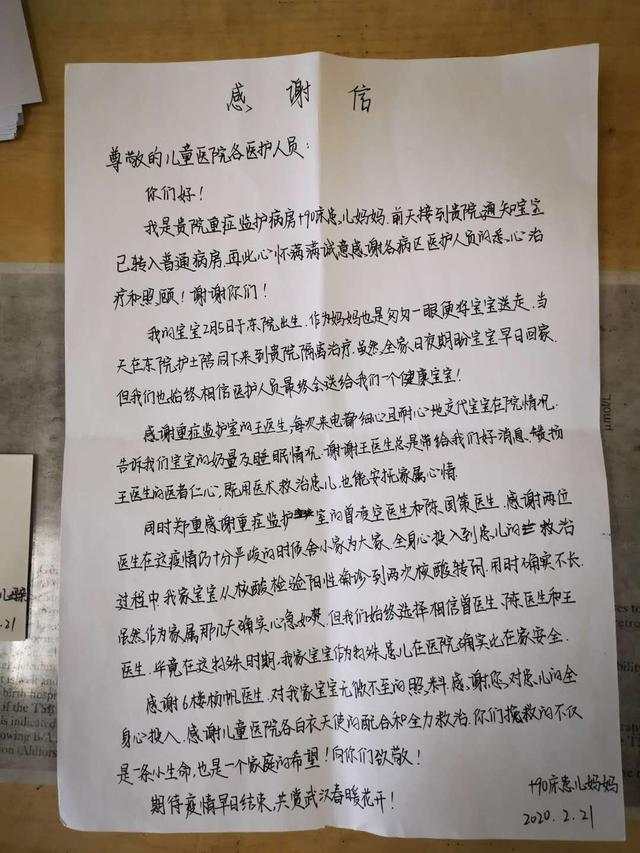 感谢信
尊敬的儿童医院各医护人员:
你们好!
我是贵院重症监护病房+90床患儿妈妈.前天接到贵院通知宝宝
已转入普通病房.再此心怀满满诚意感谢各病区医护人员的悉心治
疗和照顾!谢谢你们!
我的宝宝2月5日于东院出生.作为妈妈也是匆匆一眼便将宝宝送走.当
天在东院护士陪同下来到贵院隔离治疗.虽然全家日夜期盼宝宝早日回家.
但我们也始终相信医护人员最终会送给我们一个健康宝宝!
感谢重症监护室的王医生,每次来电都细心且耐心地交代宝宝在院情况.
告诉我们宝宝的奶量及睡眠情况.谢谢王医生总是带给我们好消息.赞扬
王医生的医者仁心,既用医术救治患儿.也能安抚家属心情.
同时郑重感谢重症监护室的曾凌空医生和陈国策医生.感谢两位
医生在这疫情仍十分严峻的时候舍小家为大家.全身心投入到患儿的救治
过程中.我家宝宝从核酸检验阳性确诊到两次核酸转阴.用时确实不长.
虽然作为家属那几天确实心急如焚.但我们始终选择相信曾医生、陈医生和王
医生.毕竟在这特殊时期.我家宝宝作为特殊患儿在医院确实比在家安全.
感谢6楼杨帆医生.对我家宝宝无微不至的照料.感谢您,对患儿的全
身心投入.感谢儿童医院各白衣天使的配合和全力救治.你们挽救的不仅
是一条小生命,也是一个家庭的希望!向你们致敬!
期待疫情早日结束,共赏武汉春暖花开!
+90床患儿妈妈
2020.2.21
μmol/L
2.21